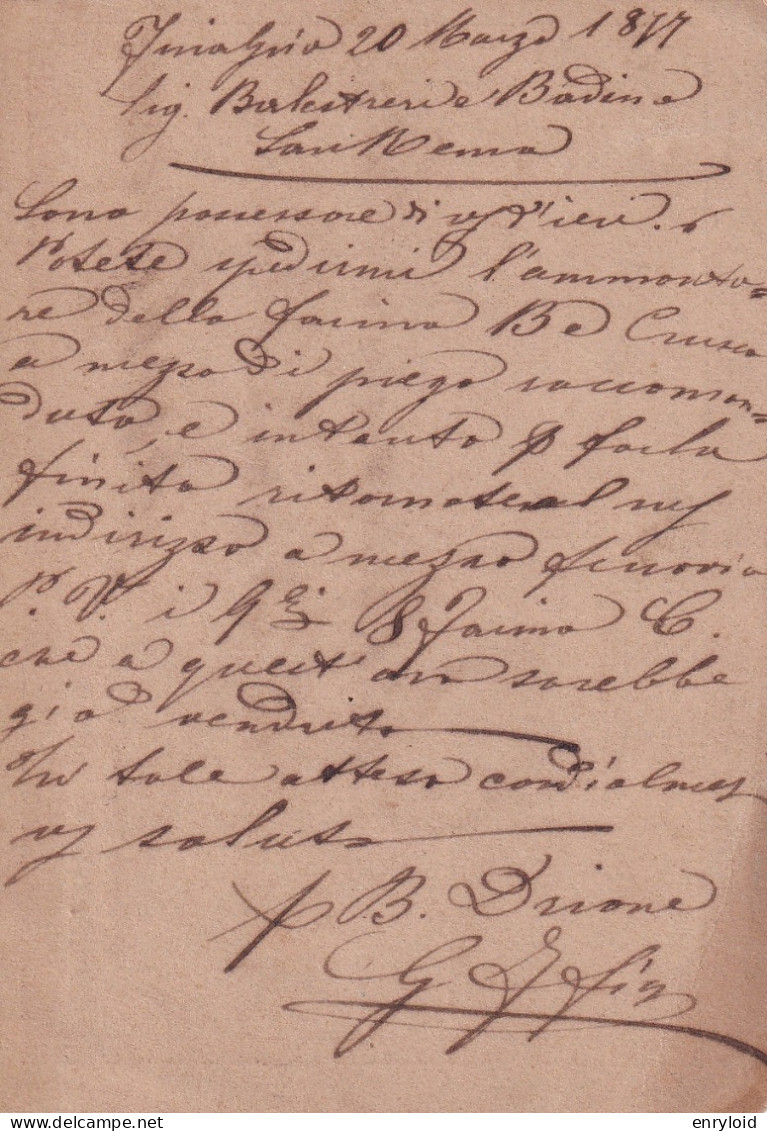 20 Marzo 1877
Sig. Balestreri e Badino
San Remo
Sono possessore di vs d'ieri.
Potete spedirmi l'ammonta=
re della farina B e Crusca
a mezzo di piego raccoman=
dato, e intanto p farla
finita ritornate al
indirizzo a mezzo ferrovia
P. V. i 8 farina C.
che a quest'ora sarebbe
già venduta
In tale attesa cordialmes
vs saluto
p B. Drione
G
enryloid